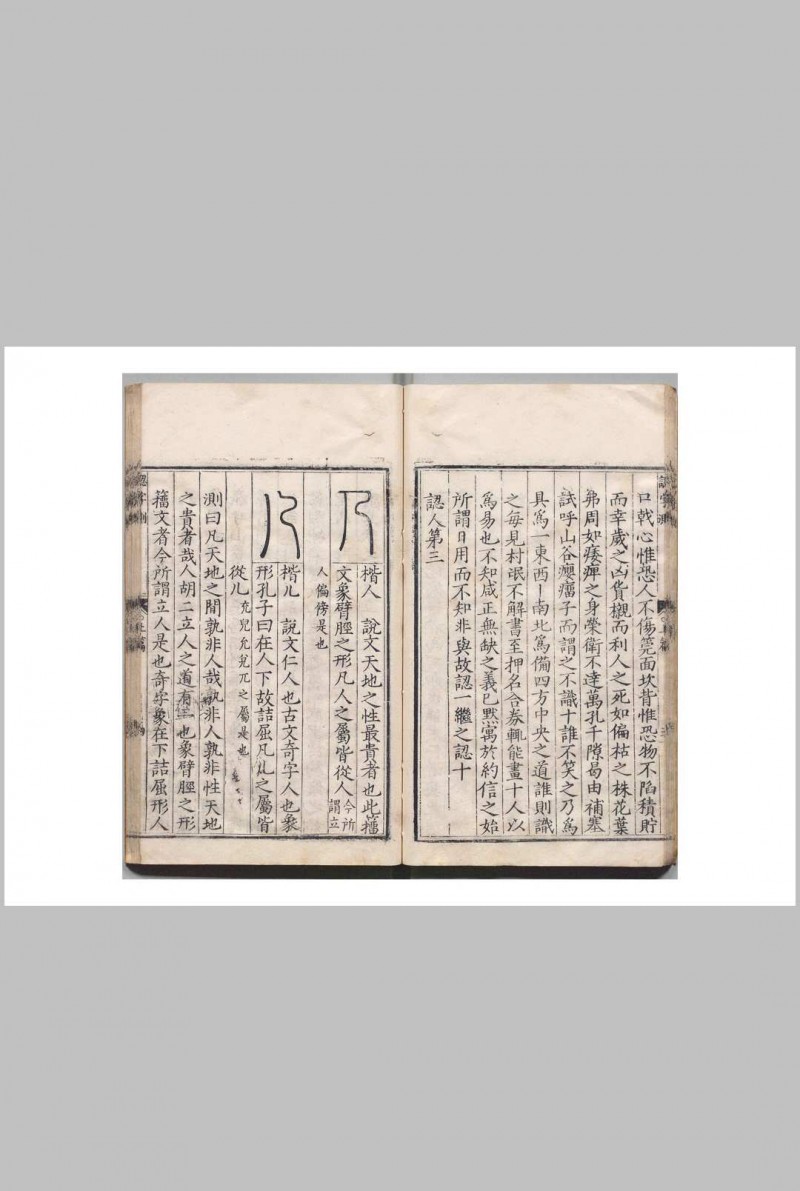 口戟心惟恐人不傷篼面坎背惟恐物不陷積貯
而幸歲之凶貨櫬而利人之死如偏枯之株花葉
弗周如痿痺之身榮衛不達萬孔千隙曷由補塞
試呼山谷癭瘤子而謂之不識十誰不笑之乃爲
具爲一東西丨南北爲備四方中央之道誰則識
之每見村氓不解書至押名合券輒能畫十人以
爲易也不知咸正無缺之義已默寓於約信之始
所謂日用而不知非與故認一繼之認十
認人第三
楷人 說文天地之性最貴者也此籒
文象臂脛之形凡人之屬皆從人今所謂立
人偏傍是也
楷儿 說文仁人也古文奇字人也象
形孔子曰在人下故詰屈凡儿之屬皆
從儿 充兒允兌兀之屬是也
測曰凡天地之閒孰非人哉孰非人孰非性天地
之貴者哉人胡二立人之道有二也象臂脛之形
籒文者今所謂立人是也奇字象在下詰屈形人